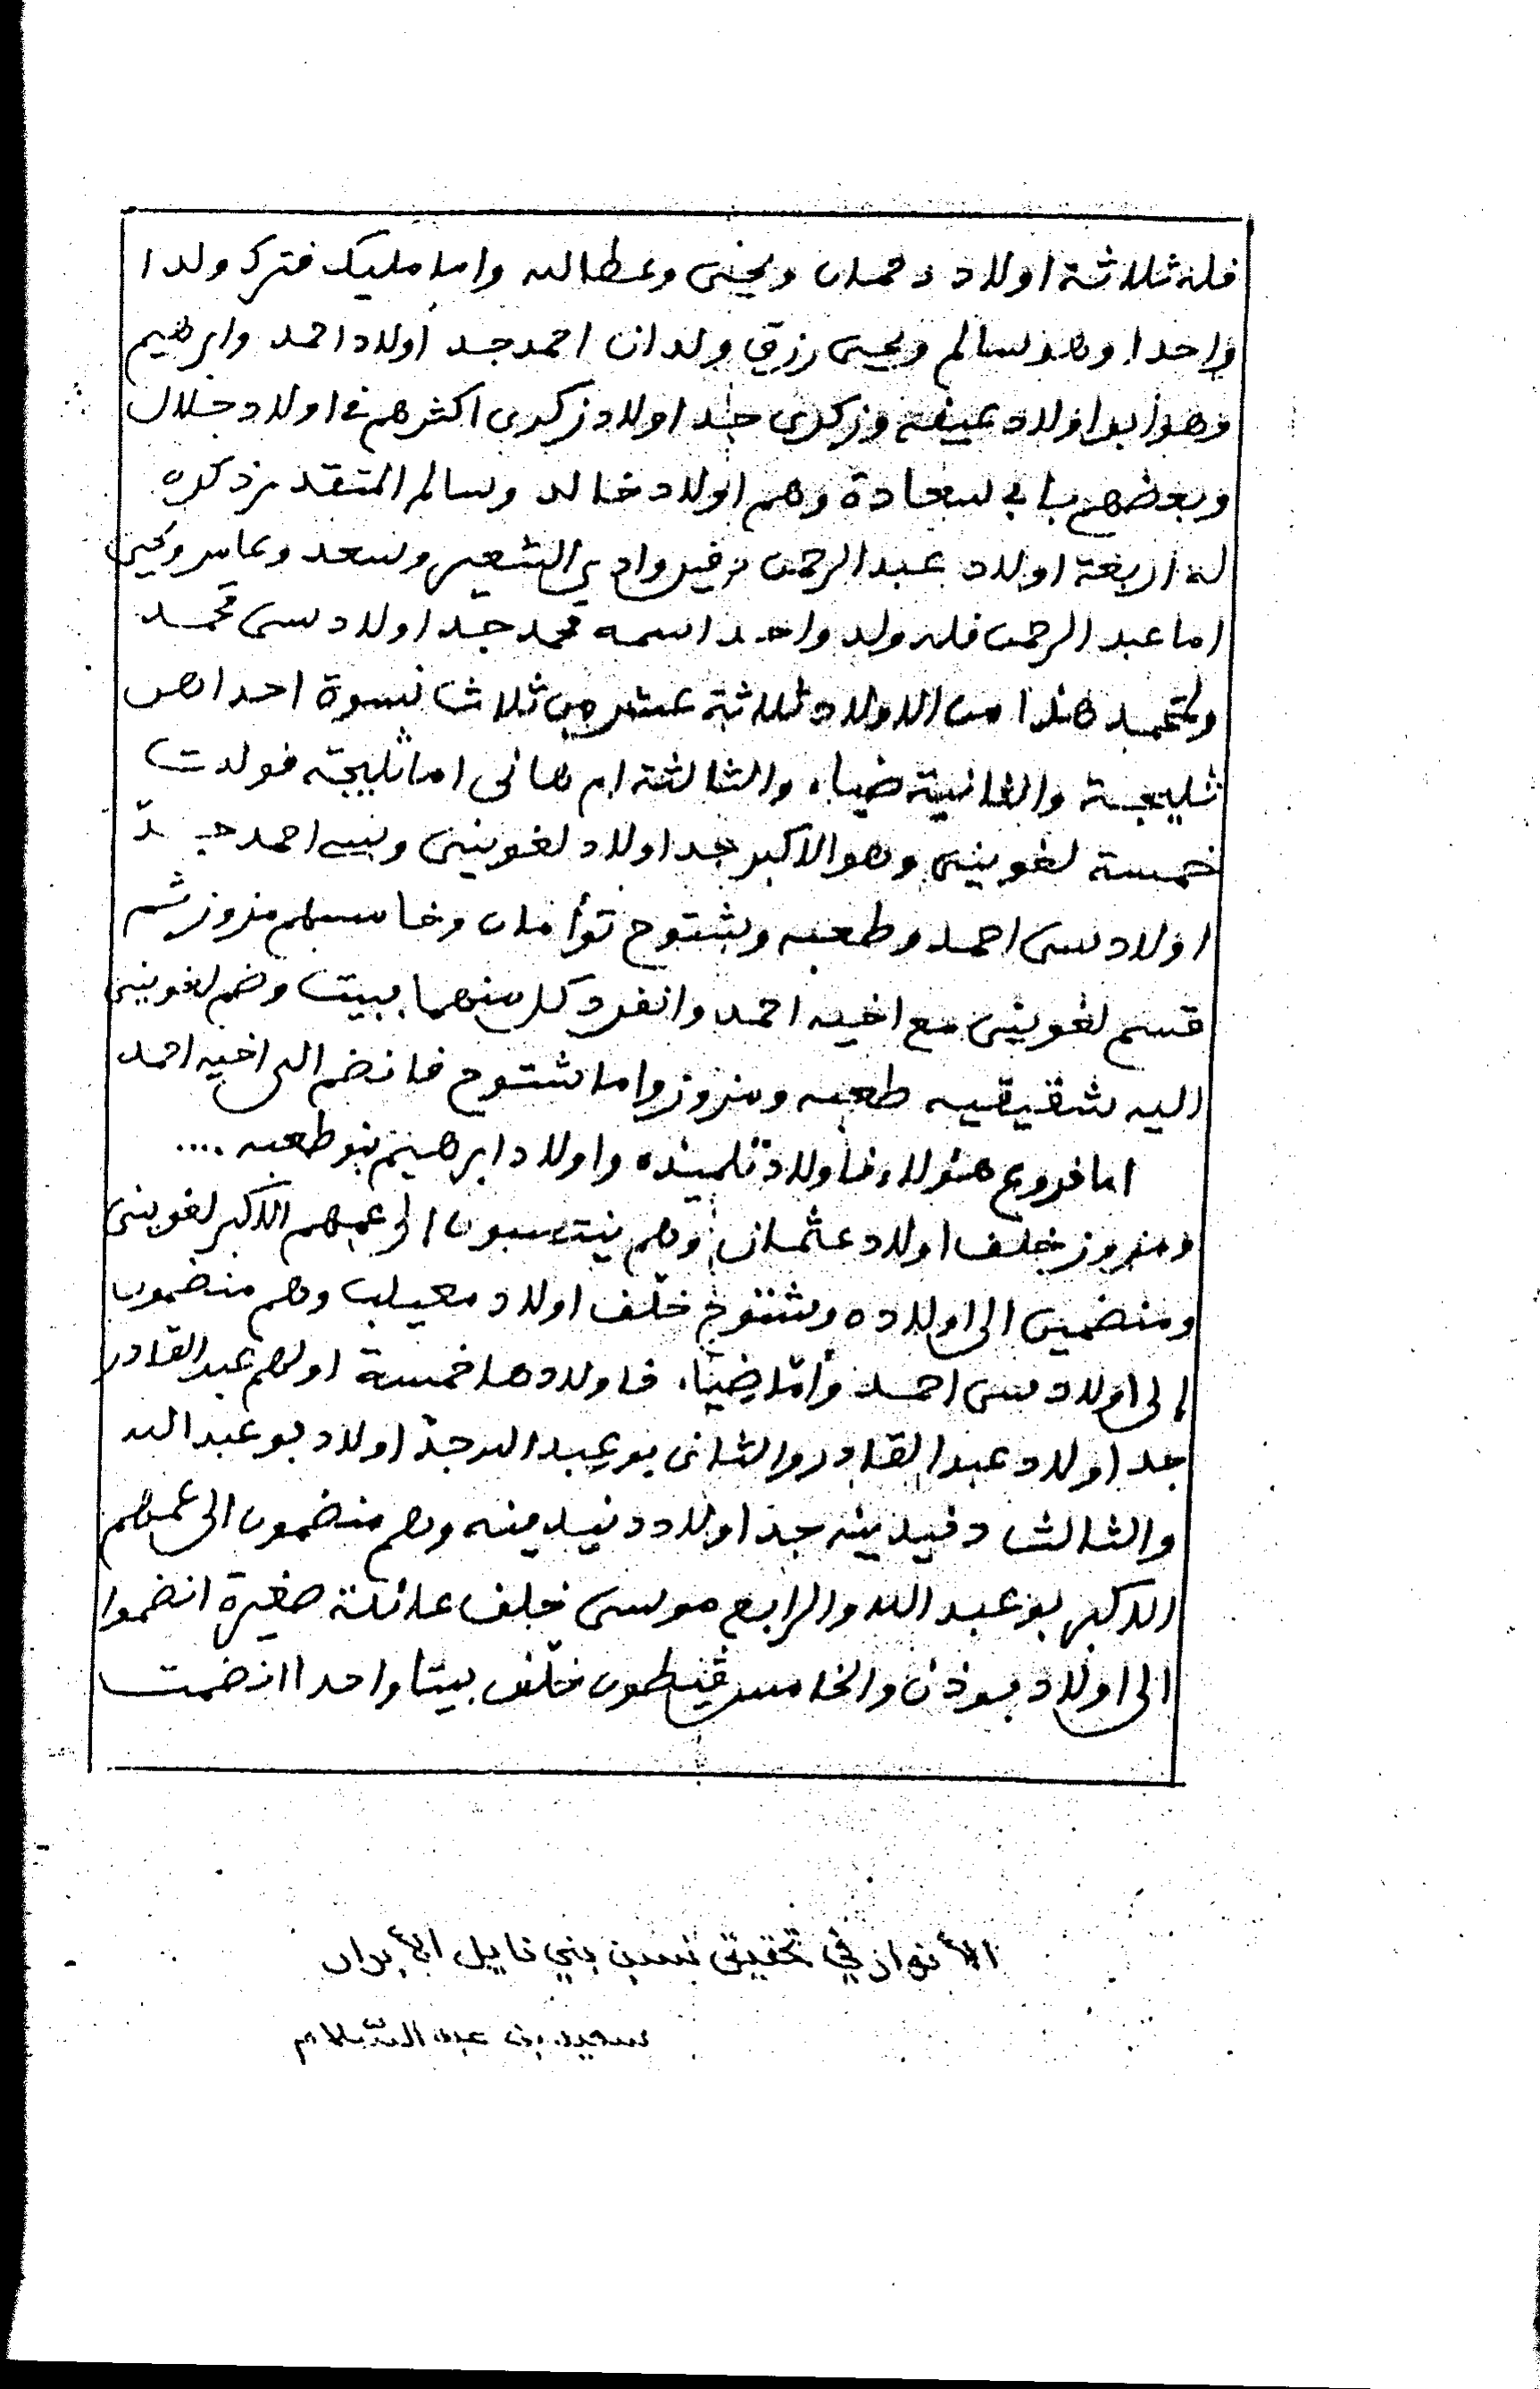 فله ثلاثة اولاد دحمان ويحيى وعطا الله واما مليك فترك ولدا
واحدا وهو سالم ويحيى رزق ولدان احمد جد اولاد احمد وابرهيم
وهو ابو اولاد عيفه وزكرى جد اولاد زكرى اكثرهم فى اولاد جلال
وبعضهم بابى سعادة وهم اولاد خالد وسالم المتقدم ذكره
له اربعة اولاد عبد الرحمن دفين وادي الشعير وسعد وعامر ويحيى
اما عبد الرحمن فله ولد واحد اسمه محمد جد اولاد سى محمد
ولمحمد هذا من الاولاد ثلاثة عشر من ثلاث نسوة احداهن
ثليجة والثانية ضياء والثالثة ام هانى اما ثليجة فولدت
خمسة لغوينى وهو الاكبر جد اولاد لغوينى وسى احمد جدّ
اولاد سى احمد وطعبه وشتوح توأمان وخامسهم مزوز ثم
قسم لغوينى مع اخيه احمد وانفرد كل منهما ببيت وضم لغوينى
اليه شقيقيه طعبه ومزوز واما شتوح فانضم الى اخيه احمد
اما فروع هؤلاء فأولاد تلميذه واولاد ابرهيم بنو طعبه ....
ومزوز خلف اولاد عثمان وهم ينتسبون الى عمهم الاكبر لغوينى
ومنضمين الى اولاده وشتوح خلّف اولاد معيلب وهم منضمون
إلى اولاد سى احمد وأمّا ضياء فاولادها خمسة اولهم عبد القادر
جد اولاد عبد القادر والثانى بو عبد الله جدّ اولاد بو عبد الله
والثالث دنيدينه جد اولاد دنيدينه وهم منضمون الى عمهم
الاكبر بو عبد الله والرابع موسى خلف عائلة صغيرة انضموا
الى اولاد بوذن والخامس قيطون خلّف بيتا واحدا انضمت
الأنوار في تحقيق نسب بني نايل الأبرار
سعيد بن عبد السّلام